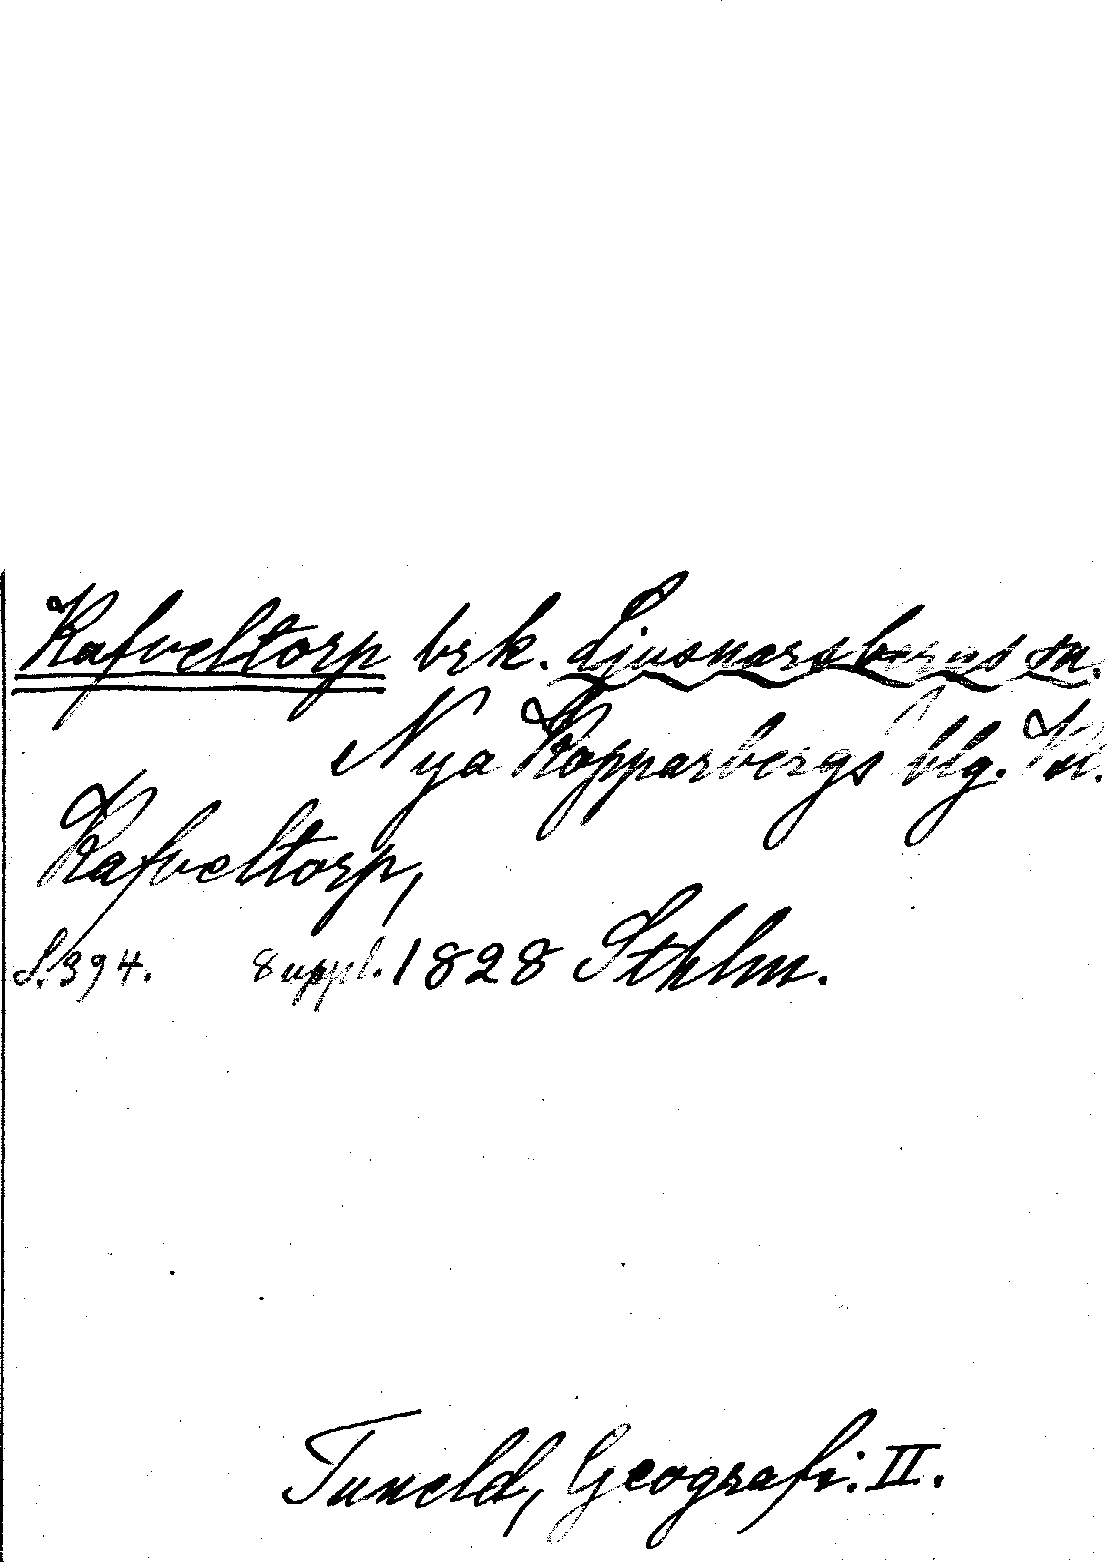 Kafveltorp brk. Ljusnarsbergs sn.
Nya Kopparbergs blg. Kbl.
Kafveltorp,
S. 394. 8 uppl. 1828 Sthlm.
Tuneld, Geografi. II.